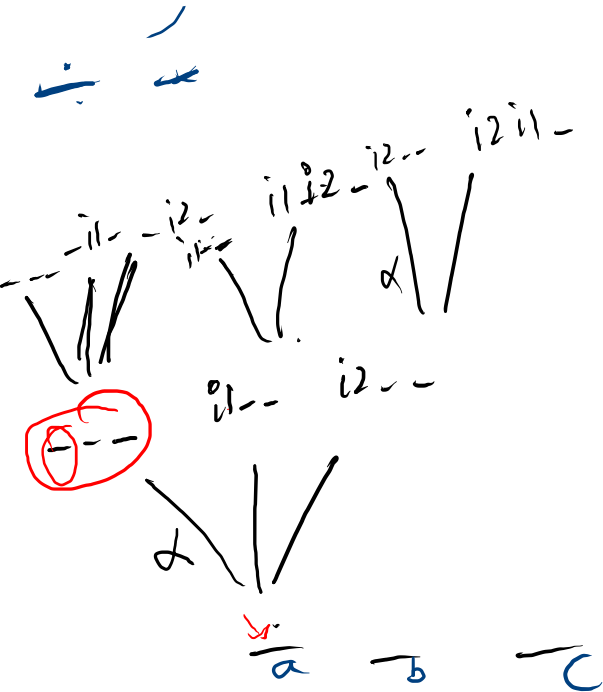 i2 -- i2 i1 -
- i1 - - i2 - i1 i2 -
--- i1 --
α
--- i1 -- i2 --
α
a b c